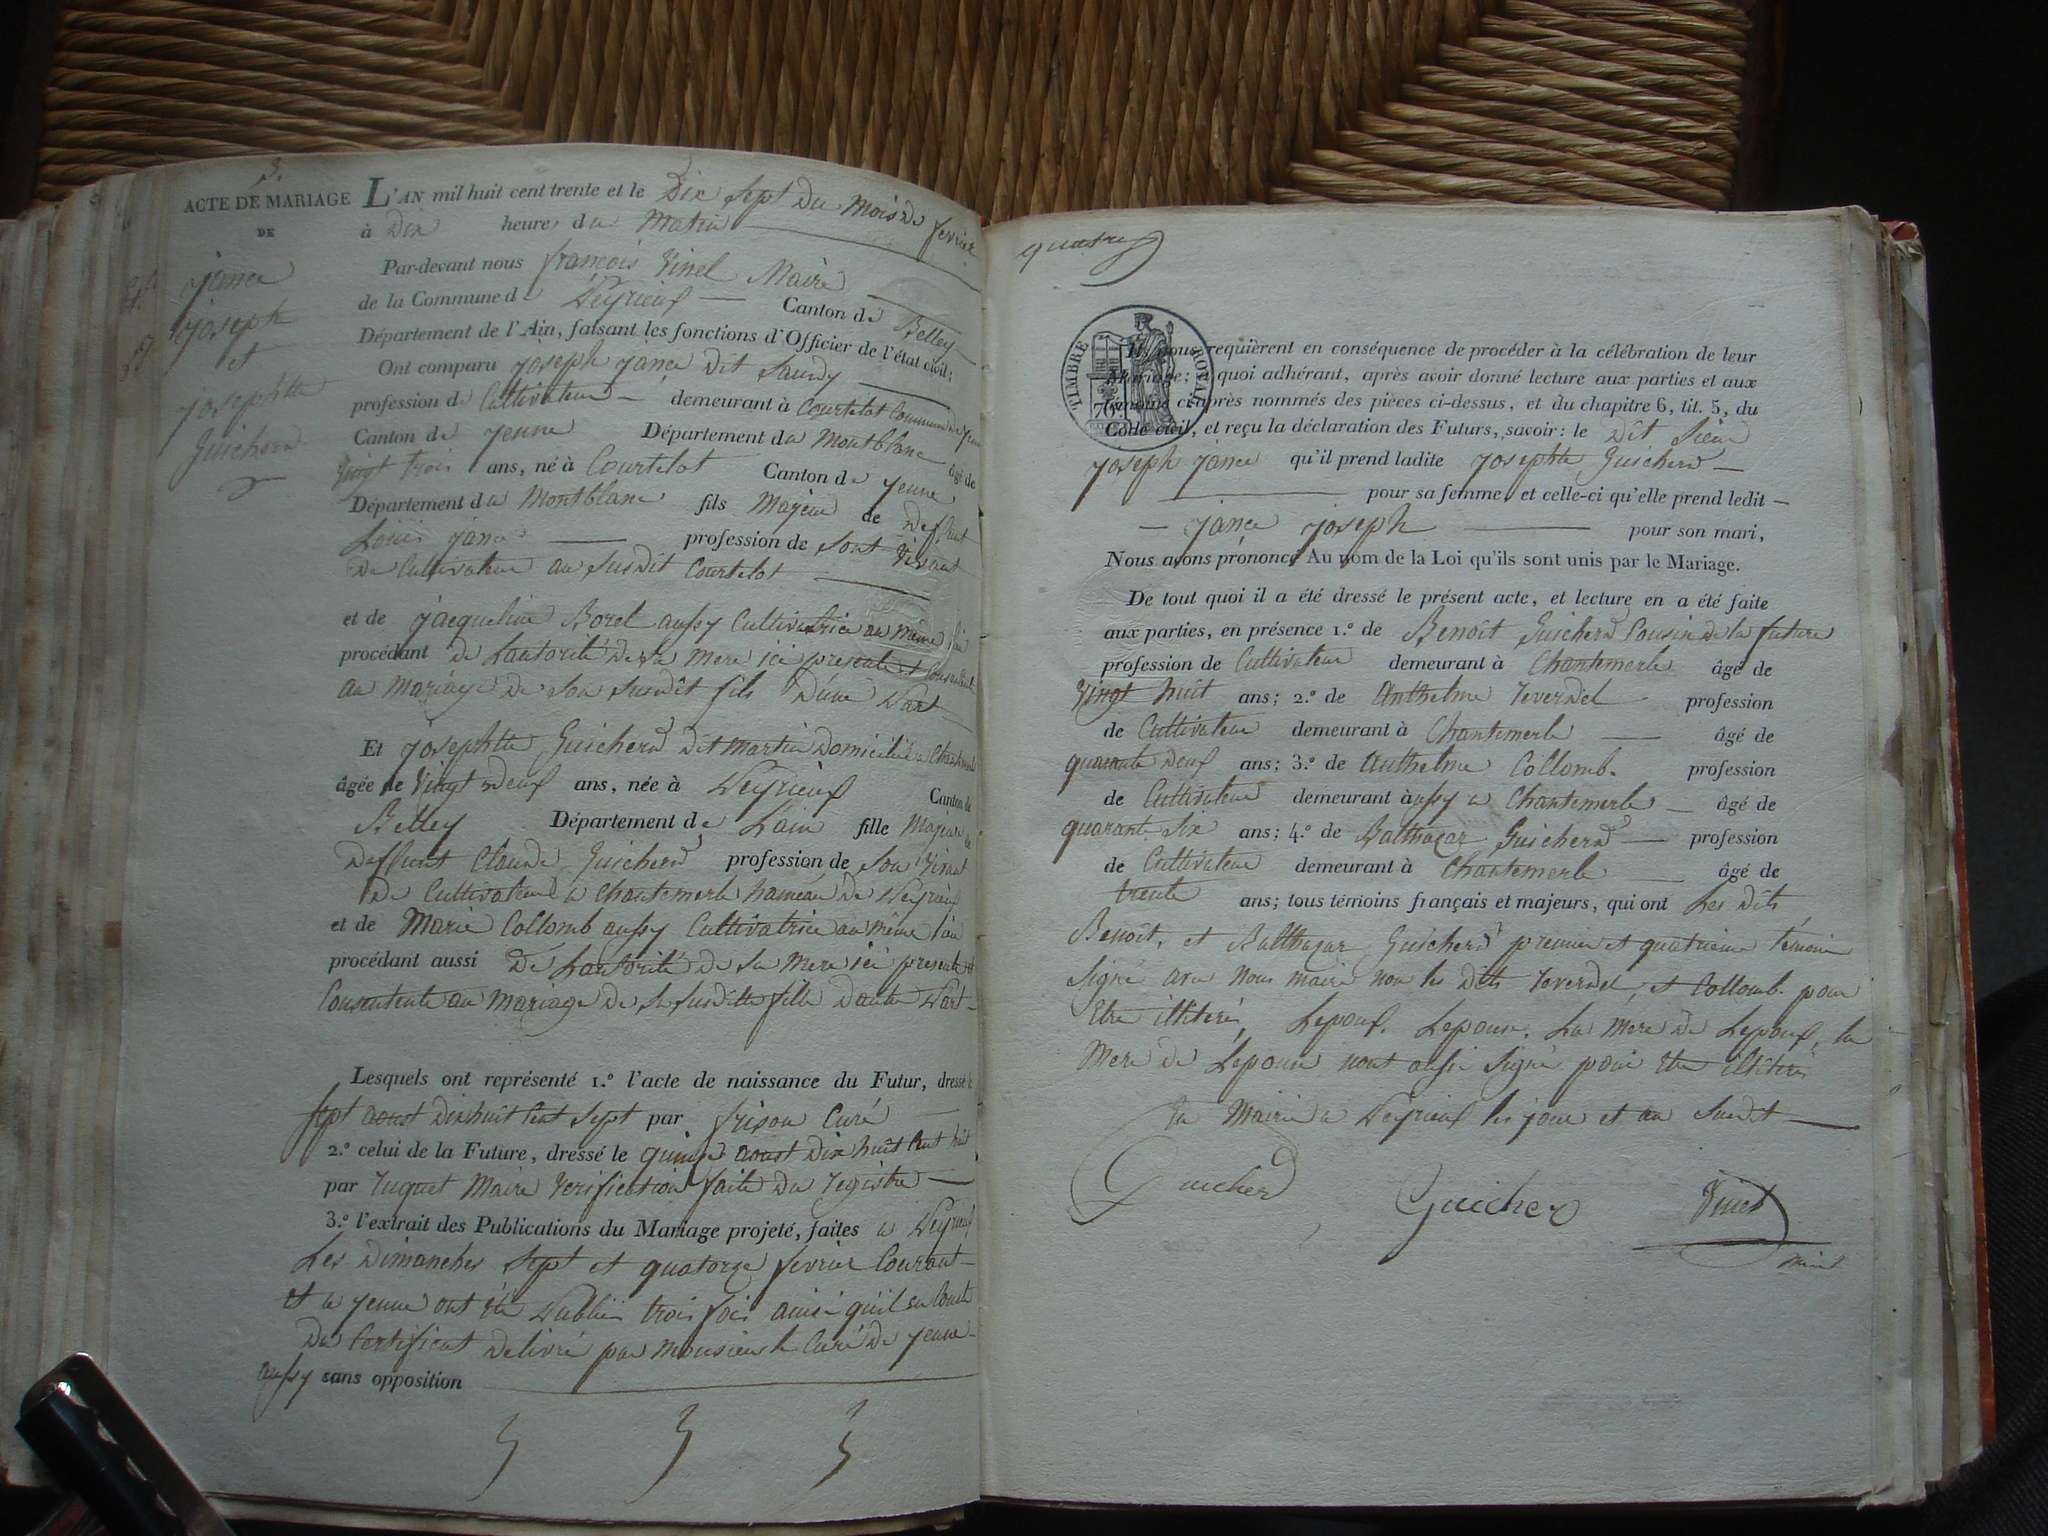 3.
ACTE DE MARIAGE
DE
Jance
Joseph
et
Josephte
Guicherd
L'AN mil huit cent trente et le Dix Sept Du Mois De fevrier
à Dix heure du Matin
Par-devant nous francois Vinel Maire
de la Commune de Veyrieux Canton de Belley
Département de l'Ain, faisant les fonctions d'Officier de l'état civil;
Ont comparu Joseph Jance Dit Saudy
profession de Cultivateur demeurant à Courtelot Commune de Jenne
Canton de Jenne Département du Montblanc âgé de
Vingt trois ans, né à Courtelot Canton de Jenne
Département du Montblanc fils Majeur de Deffunt
Louis Jance profession de Sont Vivant
De Cultivateur au Susdit Courtelot
et de Jacqueline Borel aussy Cultivatrice au même lieu
procédant de Lautorité de sa mere ici presente et Consentente
au Mariage De Son Susdît fils D'une Part
Et Josephte Guicherd dit Martin Domiciliée a Chantemerle
âgée de Vingt Deux ans, née à Veyrieux Canton de
Belley Département de Lain fille Majeure de
Deffunt Claude Guicherd profession de Son Vivant
De Cultivateur a Chantemerle hameau De Veyrieux
et de Marie Collomb aussy Cultivatrice au même lieu
procédant aussi De Lautorité de Sa Mere ici presente et
Consentente au Mariage De Sa Susditte fille Dautre Part
Lesquels ont représenté 1.º l'acte de naissance du Futur, dressé le
Sept aoust Dixhuit Cent Sept par frison Curé
2.º celui de la Future, dressé le quinze aoust Dix huit Cent huit
par Juguet Maire Verification faite Du Registre
3.º l'extrait des Publications du Mariage projeté, faites a Veyrieux
Les Dimanches Sept et quatorze fevrier Courant
et a Jenne ont été Publiées trois fois ainsi qu'il en Conste
Du Certificat Delivré par Monsieur le Curé De Jenne
aussy sans opposition
quatre
TIMBRE ROYAL
70
Ils nous requièrent en conséquence de procéder à la célébration de leur
Mariage; à quoi adhérant, après avoir donné lecture aux parties et aux
témoins ci-après nommés des pièces ci-dessus, et du chapitre 6, tit. 5, du
Code civil, et reçu la déclaration des Futurs, savoir: le Dit Sieur
Joseph Jance qu'il prend ladite Josephte Guicherd
pour sa femme, et celle-ci qu'elle prend ledit
Jance Joseph pour son mari,
Nous avons prononcé Au nom de la Loi qu'ils sont unis par le Mariage.
De tout quoi il a été dressé le présent acte, et lecture en a été faite
aux parties, en présence 1.º de Benoît Guicherd Cousin de la future
profession de Cultivateur demeurant à Chantemerle âgé de
Vingt huit ans; 2.º de Anthelme Reverdel profession
de Cultivateur demeurant à Chantemerle âgé de
quarante Deux ans; 3.º de Anthelme Collomb profession
de Cultivateur demeurant aussy a Chantemerle âgé de
quarante Six ans; 4.º de Balthazar Guicherd profession
de Cultivateur demeurant à Chantemerle âgé de
trente ans; tous témoins français et majeurs, qui ont Les Dits
Benoît, et Balthazar Guicherd premier et quatrieme témoin
Signé avec Nous maire non les Dits Reverdel, et Collomb. pour
Etre illitérés, Lepoux. Lepouse. La Mere De Lepoux, la
Mere De Lepouse nont aussi Signé pour Etre illitérés
En Mairie a Veyrieux les jour et an Susdit
Guicherd
Guicher
Vinel